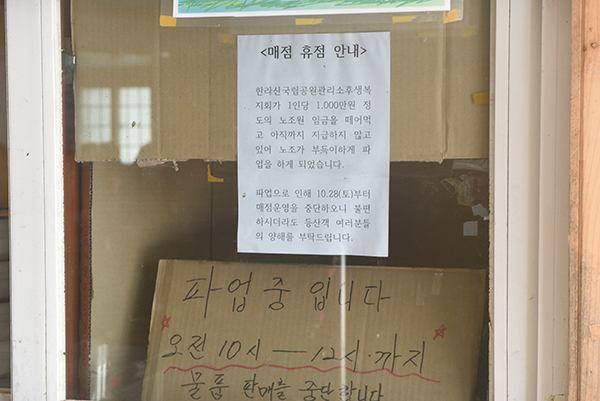 <매점 휴점 안내>
한라산국립공원관리소후생복
지회가 1인당 1,000만원 정
도의 노조원 임금을 떼어먹
고 아직까지 지급하지 않고
있어 노조가 부득이하게 파
업을 하게 되었습니다.
파업으로 인해 10.28(토)부터
매점운영을 중단하오니 불편
하시더라도 등산객 여러분들
의 양해를 부탁드립니다.
파업중입니다
오전 10시 — 12시·까지
물품 판매를 중단합니다